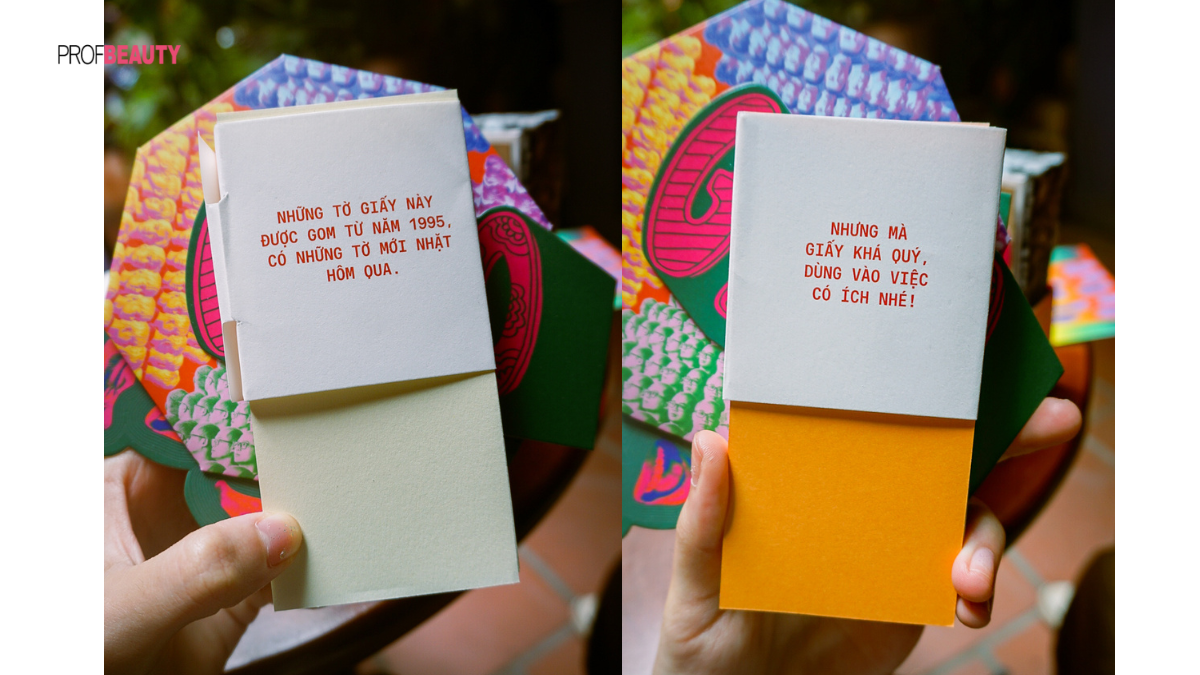 PROFBEAUTY
NHỮNG TỜ GIẤY NÀY
ĐƯỢC GOM TỪ NĂM 1995,
CÓ NHỮNG TỜ MỚI NHẶT
HÔM QUA.
NHƯNG MÀ
GIẤY KHÁ QUÝ,
DÙNG VÀO VIỆC
CÓ ÍCH NHÉ!